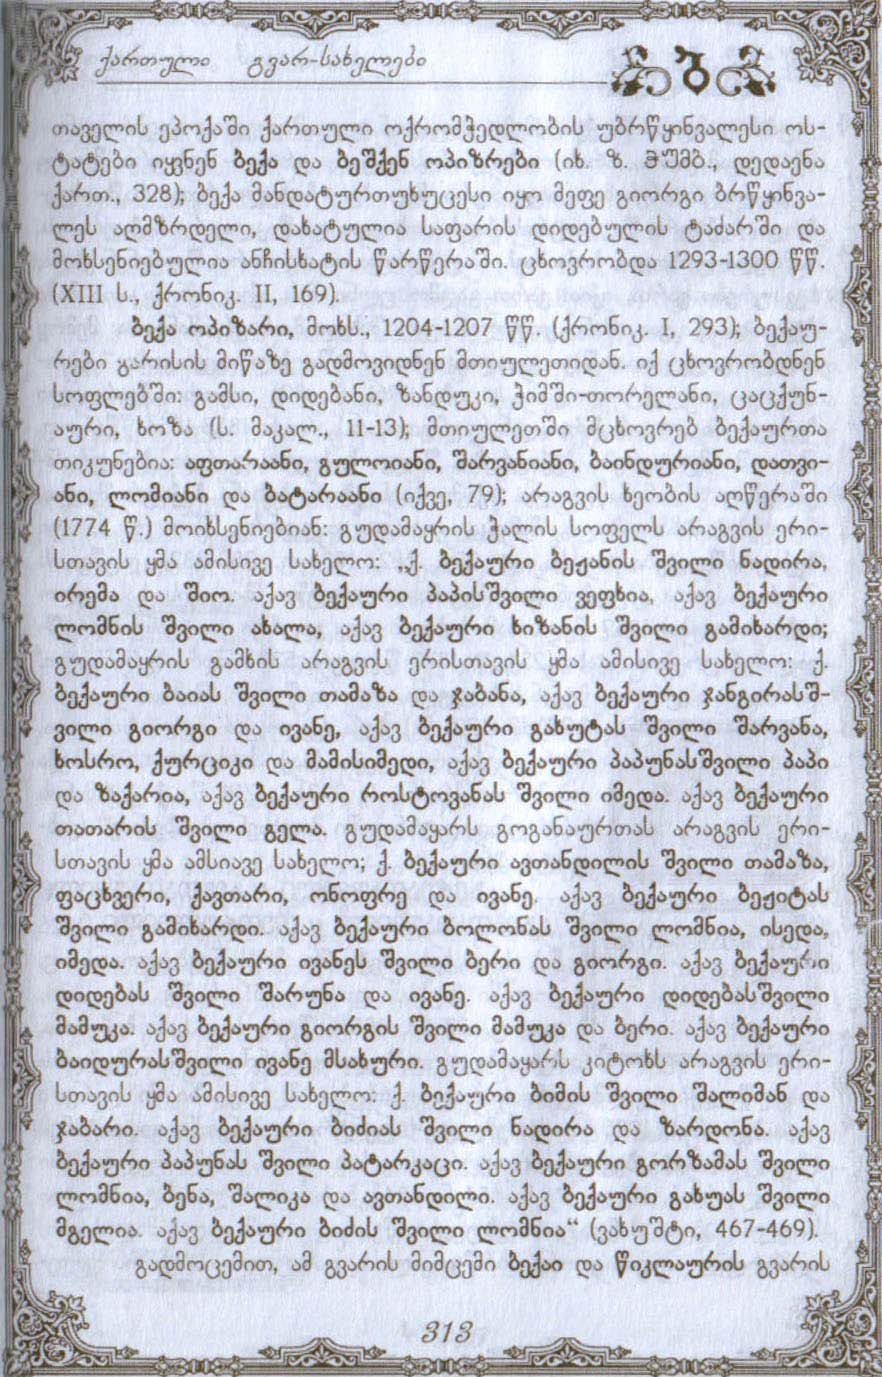 ქართული გვარ-სახელები
ბ
თაველის ეპოქაში ქართული ოქრომჭედლობის უბრწყინვალესი ოს-
ტატები იყვნენ ბექა და ბეშქენ ოპიზრები (იხ. ზ. ჭუმბ., დედაენა
ქართ., 328); ბექა მანდატურთუხუცესი იყო მეფე გიორგი ბრწყინვა-
ლეს აღმზრდელი, დახატულია საფარის დიდებულის ტაძარში და
მოხსენიებულია ანჩისხატის წარწერაში. ცხოვრობდა 1293-1300 წწ.
(XIII ს., ქრონიკ. II, 169).
ბექა ოპიზარი, მოხს., 1204-1207 წწ. (ქრონიკ. I, 293); ბექაუ-
რები ყარისის მიწაზე გადმოვიდნენ მთიულეთიდან. იქ ცხოვრობდნენ
სოფლებში: გამსი, დიდებანი, ზანდუკი, ჭიმში-თორელანი, ცაცქუნ-
აური, ხოზა (ს. მაკალ., 11-13); მთიულეთში მცხოვრებ ბექაურთა
თიკუნებია: აფთარაანი, გულოიანი, შარვანიანი, ბაინდურიანი, დათვი-
ანი, ლომიანი და ბატარაანი (იქვე, 79); არაგვის ხეობის აღწერაში
(1774 წ.) მოიხსენიებიან: გუდამაყრის ჭალის სოფელს არაგვის ერი-
სთავის ყმა ამისივე სახელო: „ქ. ბექაური ბეჟანის შვილი ნადირა,
ირემა და შიო. აქავ ბექაური პაპისშვილი ვეფხია, აქავ ბექაური
ლომნის შვილი ახალა, აქავ ბექაური ხიზანის შვილი გამიხარდი;
გუდამაყრის გამხის არაგვის ერისთავის ყმა ამისივე სახელო: ქ.
ბექაური ბაიას შვილი თამაზა და ჯაბანა, აქავ ბექაური ჯანგირასშ-
ვილი გიორგი და ივანე, აქავ ბექაური გახუტას შვილი შარვანა,
ხოსრო, ქურციკი და მამისიმედი, აქავ ბექაური პაპუნასშვილი პაპი
და ზაქარია, აქავ ბექაური როსტოვანას შვილი იმედა. აქავ ბექაური
თათარის შვილი გელა. გუდამაყარს გოგანაურთას არაგვის ერი-
სთავის ყმა ამსიავე სახელო; ქ. ბექაური ავთანდილის შვილი თამაზა,
ფაცხვერი, ქავთარი, ონოფრე და ივანე. აქავ ბექაური ბეჟიტას
შვილი გამიხარდი. აქავ ბექაური ბოლონას შვილი ლომნია, ისედა,
იმედა. აქავ ბექაური ივანეს შვილი ბერი და გიორგი. აქავ ბექაური
დიდებას შვილი შარუნა და ივანე. აქავ ბექაური დიდებასშვილი
მამუკა. აქავ ბექაური გიორგის შვილი მამუკა და ბერი. აქავ ბექაური
ბაიდურასშვილი ივანე მსახური. გუდამაყარს კიტოხს არაგვის ერი-
სთავის ყმა ამისივე სახელო: ქ. ბექაური ბიმის შვილი შალიმან და
ჯაბარი. აქავ ბექაური ბიძიას შვილი ნადირა და ზარდონა. აქავ
ბექაური პაპუნას შვილი პატარკაცი. აქავ ბექაური გორზამას შვილი
ლომნია, ბენა, შალიკა და ავთანდილი. აქავ ბექაური გახუას შვილი
მგელია. აქავ ბექაური ბიძის შვილი ლომნია“ (ვახუშტი, 467-469).
გადმოცემით, ამ გვარის მიმცემი ბექაი და წიკლაურის გვარის
313